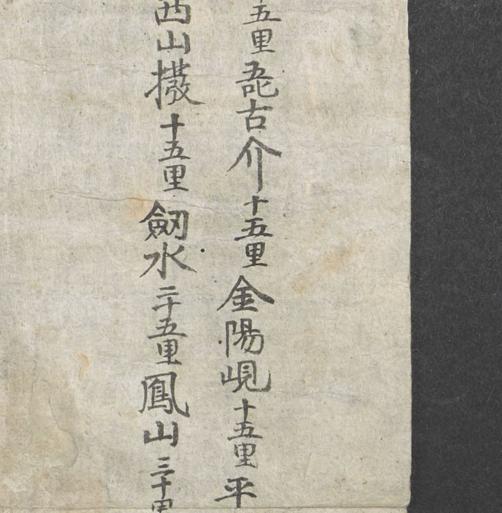 五里古介十五里金陽峴十五里平
西山撥十五里劒水二十五里鳳山三十里